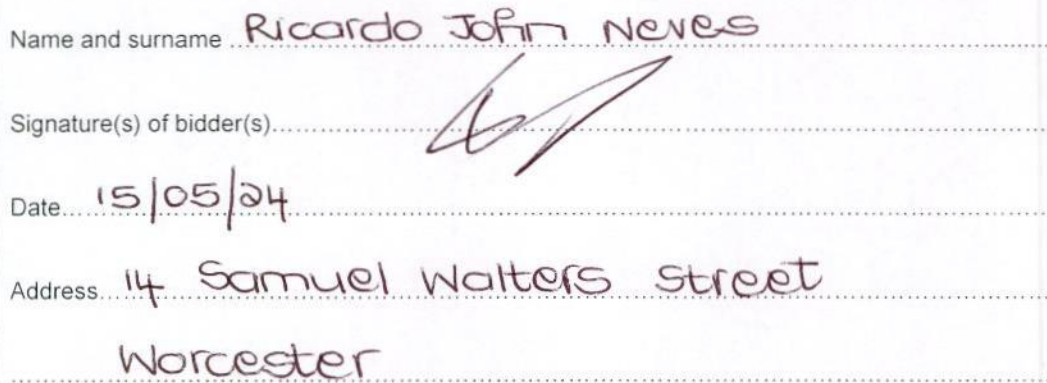 Name and surname Ricardo John Neves
Signature(s) of bidder(s)
Date 15/05/24
Address 14 Samuel Walters Street
Worcester